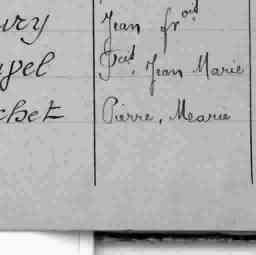 ury Jean fr^ois
yel F^ced, Jean Marie
chet Pierre, Marie